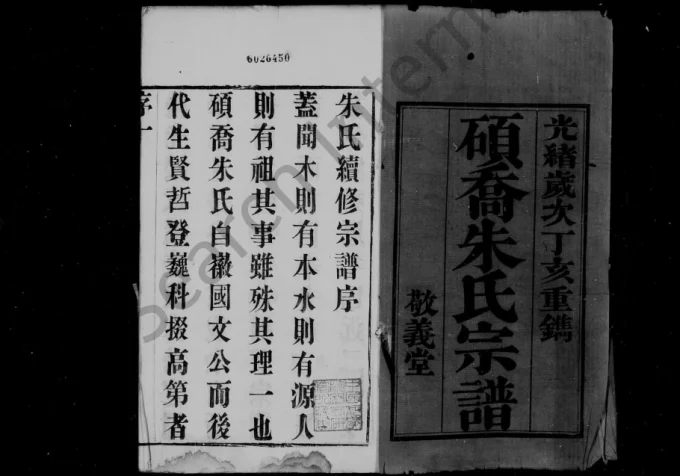 光緒歲次丁亥重鐫
碩喬朱氏宗譜
敬義堂
6026450
朱氏續修宗譜序
蓋聞木則有本水則有源人
則有祖其事雖殊其理一也
碩喬朱氏自徽國文公而後
代生賢哲登巍科掇高第者
序一